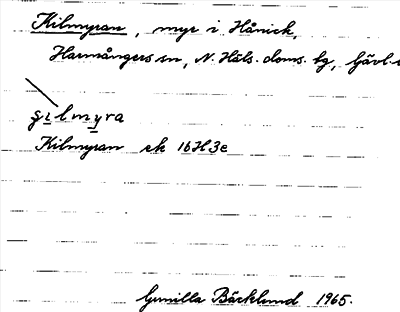 Kilmyran, myr i Hånick,
Harmångers sn, N. Häls. doms. bg, Gävl.
Kilmyran ek 16H3e
Gunilla Bäcklund 1965.